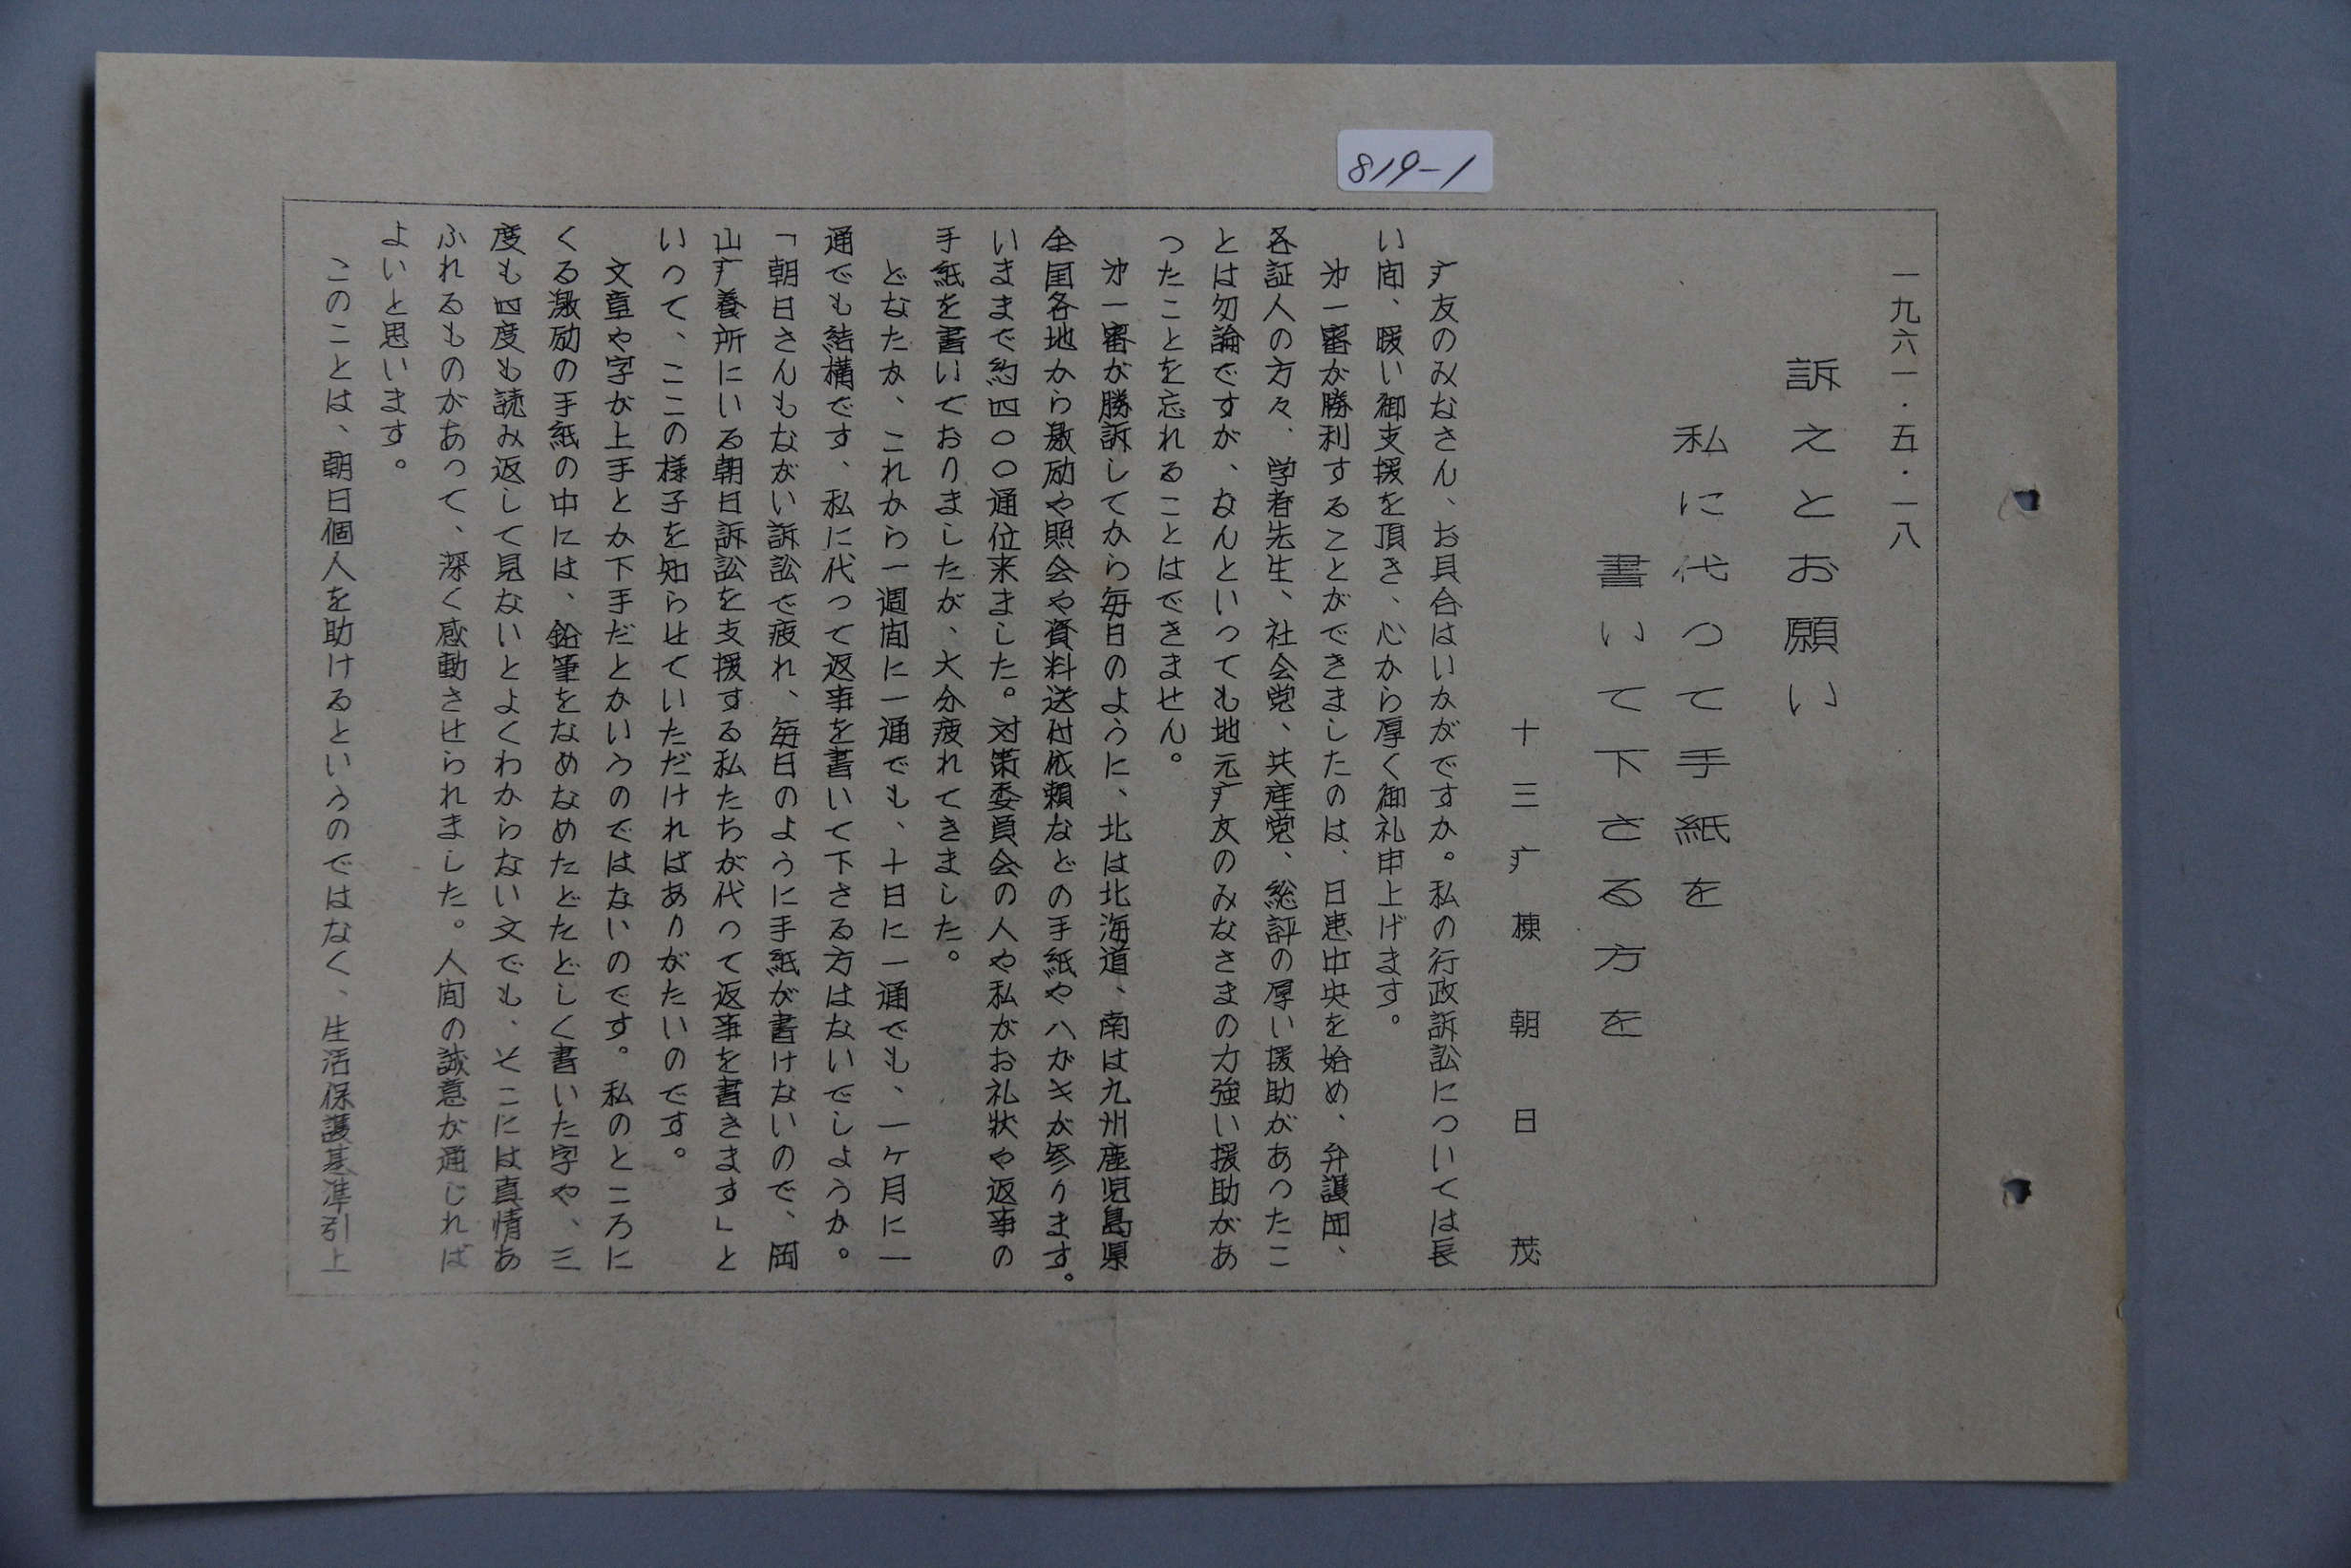 819-1
一九六一・五・一八
訴えとお願い
私に代つて手紙を
書いて下さる方を
十三疒棟 朝日茂
疒友のみなさん、お具合はいかがですか。私の行政訴訟については長
い間、暖い御支援を頂き、心から厚く御礼申上げます。
㐧一審が勝利することができましたのは、日患中央を始め、弁護団、
各証人の方々、学者先生、社会党、共産党、総評の厚い援助があつたこ
とは勿論ですが、なんといつても地元疒友のみなさまの力強い援助があ
つたことを忘れることはできません。
㐧一審が勝訴してから毎日のように、北は北海道、南は九州鹿児島県
全国各地から激励や照会や資料送付依頼などの手紙やハガキが参ります。
いままで約四〇〇通位来ました。対策委員会の人や私がお礼状や返事の
手紙を書いておりましたが、大分疲れてきました。
どなたか、これから一週間に一通でも、十日に一通でも、一ケ月に一
通でも結構です、私に代つて返事を書いて下さる方はないでしようか。
「朝日さんもながい訴訟で疲れ、毎日のように手紙が書けないので、岡
山疒養所にいる朝日訴訟を支援する私たちが代つて返事を書きます」と
いつて、ここの様子を知らせていただければありがたいのです。
文章や字が上手とか下手だとかいうのではないのです。私のところに
くる激励の手紙の中には、鉛筆をなめなめたどたどしく書いた字や、三
度も四度も読み返して見ないとよくわからない文でも、そこには真情あ
ふれるものがあつて、深く感動させられました。人間の誠意が通じれば
よいと思います。
このことは、朝日個人を助けるというのではなく、生活保護基準引上